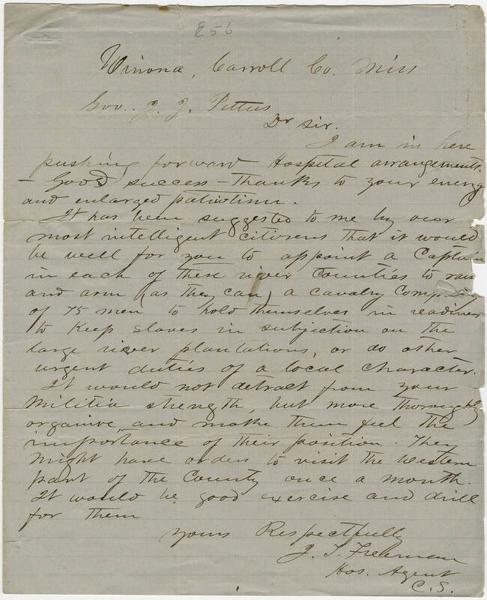 E56
Winona, Carroll Co. Miss
Gov. J. J. Pettus
Dr Sir.
I am in here
pushing forward Hospital arrangements.
- Good success - thanks to your energy
and enlarged patriotism.
It has been suggested to me by our
most intelligent citizens that it would
be well for you to appoint a Captain
in each of these river Counties to raise
and arm (as they can) a cavalry Company
of 75 men to hold themselves in readiness
to keep slaves in subjection on the
large river plantations, or do other
urgent duties of a local character.
It would not detract from your
Militia strength, but more thoroughly
organize and make them feel the
importance of their position. They
might have orders to visit the western
part of the County once a month.
It would be good exercise and drill
for them
Yours Respectfully
J. T. Freeman
Hos. Agent
C. S.